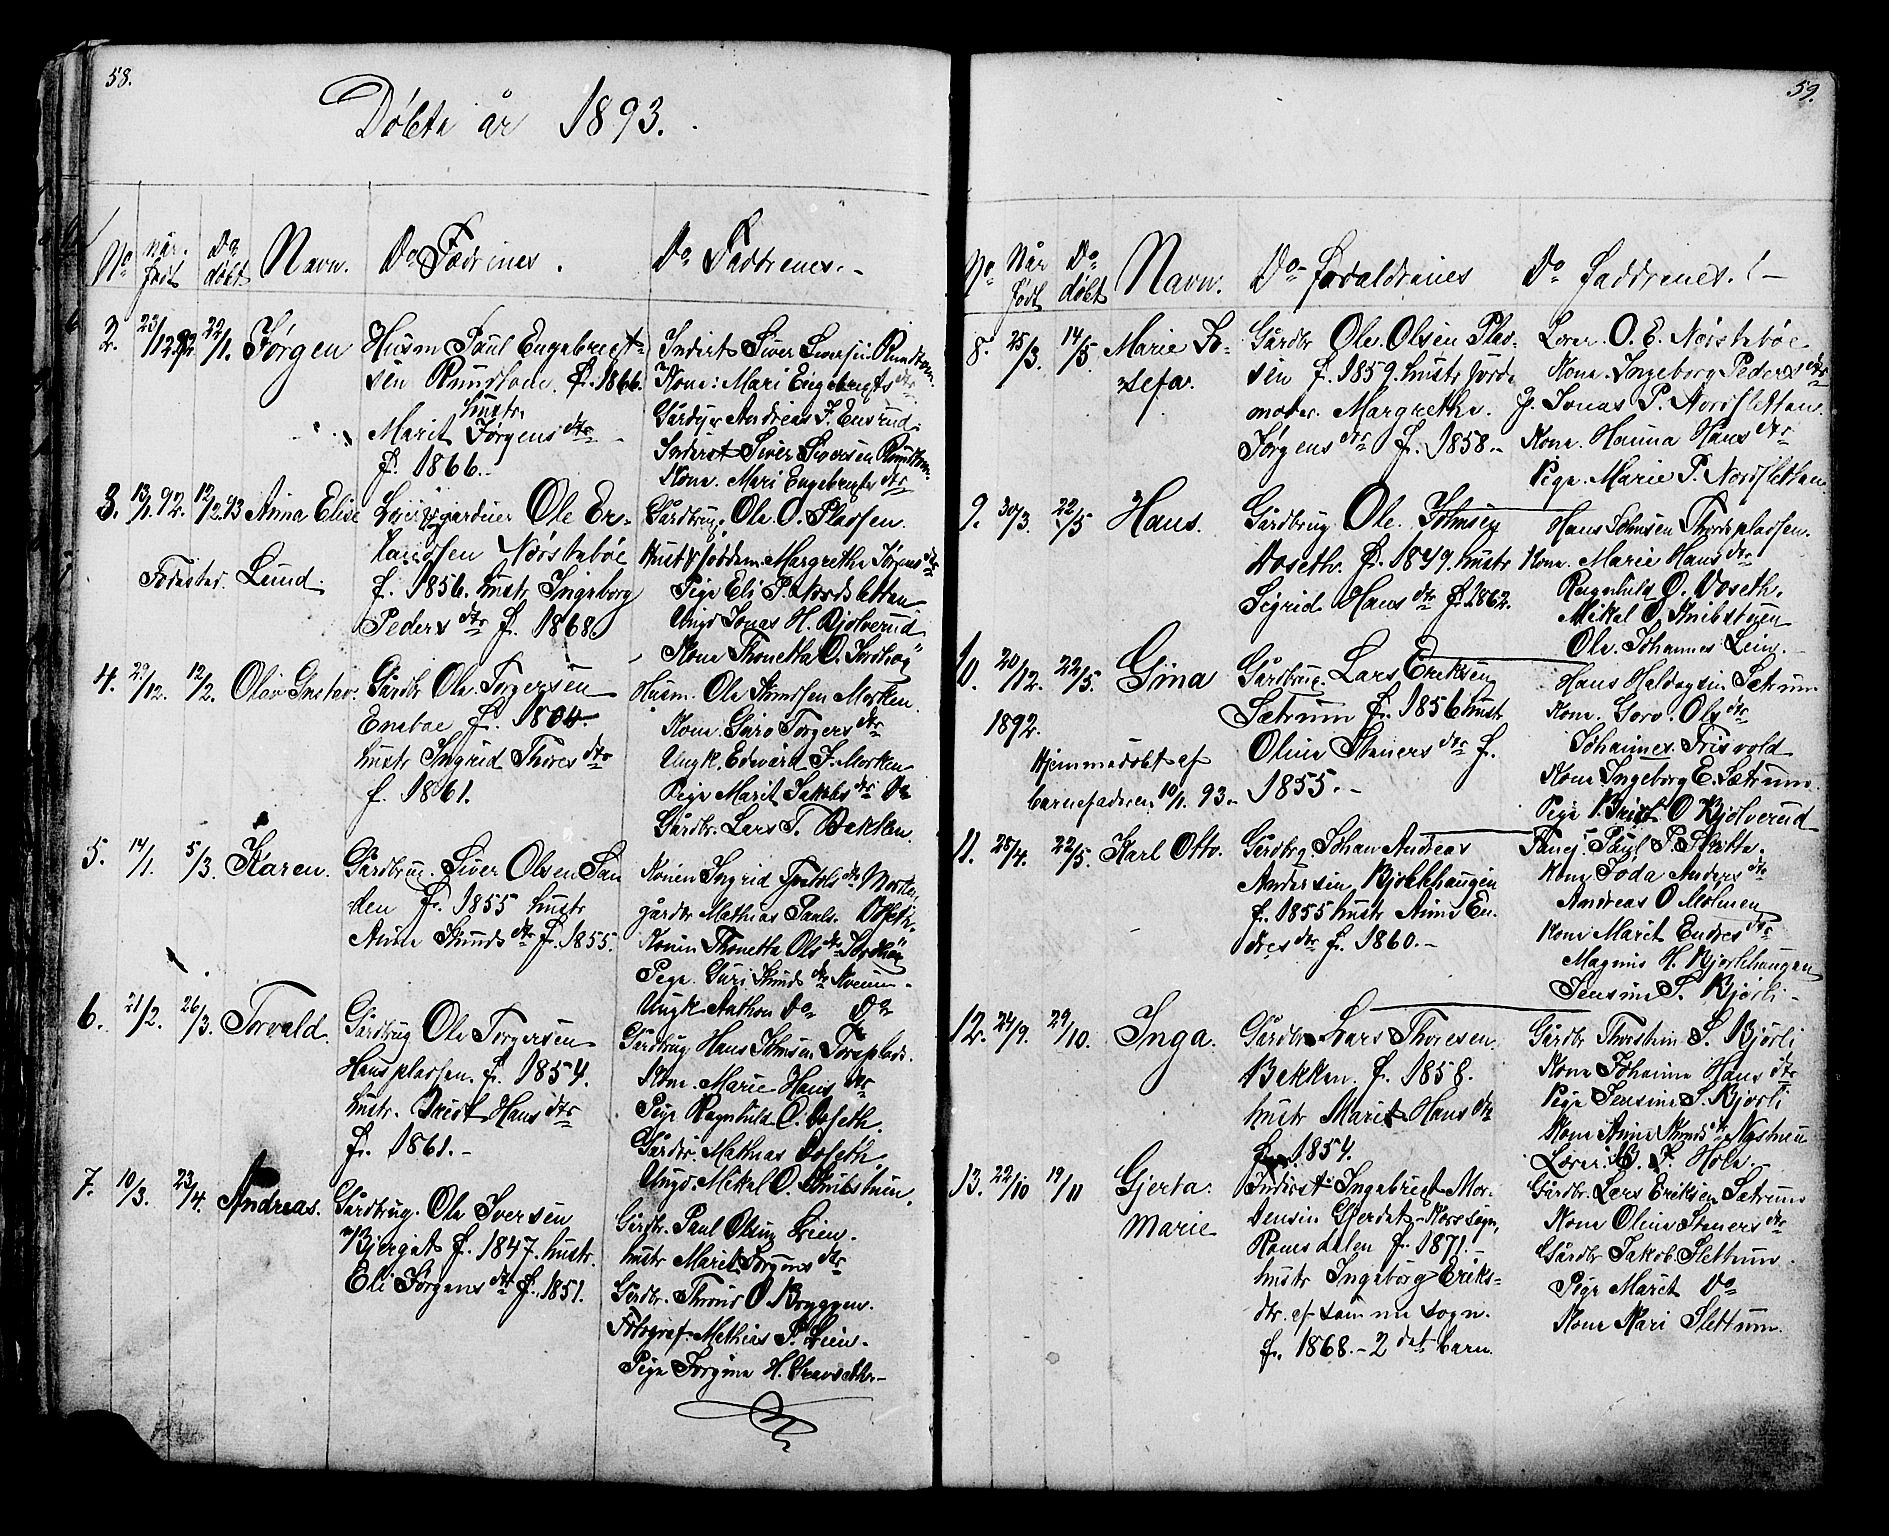 58.
Døbte år 1893.
No
når født
Do døbt
Navn.
Do Fædrines.
Do Faddrenes.
2. 23/12 92. 22/1. Jørgen
Husm Paul Engebrigt-
sen Rundtom. f. 1866.
hustr.
Marit Jørgens dtr
f. 1866.
Inderst Siver Siversen Rundtom.
Kone: Mari Engebrigts dtr
Gårdbr Andreas J. Ensrud.
Inderst Siver Siversen Rundtom.
Kone. Mari Engebrigts dtr
3. 13/1. 92. 12/2. 93 Anna Elise
Forester Lund.
Ole Er-
landsen Nørstebøe
f. 1856. hustr Ingeborg
Peders dtr f. 1868.
Gårdbrug. Ole O. Plassen.
Hustr Margrethe Jørgens dtr
Pige Eli P. Nordsletten
Ungd Jonas H. Bjølverud
Kone Thonetta O. Jordhøg
4. 29/12. 12/2. Olav Gustav.
Gårdbr Ole Torgersen
Eneboe f. 1864.
hustr Ingrid Thores dtr
f. 1861.
Husm. Ole Amundsen Morken.
Kone Guro Torgers dtr
Ungk. Edvard J. Morken
Pige Marit Jakobs dtr Do
Gårdbr. Lars T. Bakken.
5. 14/1. 5/3. Karen.
Gårdbrug. Siver Olsen San
den f. 1855 hustr
Anne Amunds dtr f. 1855.
Konen Ingrid dtr Morken,
gårdbr Mathias Pauls. Voseth.
Konen Thonetta Ols dtr Jordhøi
Pige. Guri Amunds dtr
Ungk. Anthon Do Do
6. 21/2. 26/3. Torvald.
Gårdbrug Ole Torgersen
Hansplassen. f. 1854.
hustr. Brit Hans dtr
f. 1861.-
Gårdbrug Hans Johnsen Toreplads.
Kone. Marie Hans dtr
Pige Ragnhild O. Voseth.
Gårdbr. Mathias Voseth
Ungd. Mikal O. Knibstuen.
7. 10/3. 23/4. Andreas.
Gårdbrug. Ole Iversen
Bjerget f. 1847. hustr.
Eli Jørgens dtr f. 1851.
Gårdbr. Paul Olsen Leien.
hustr Marit Jørgens dtr
Gårdbr. Thrond O Bryggen.
Fotograf. Mathias P. Leien.
Pige Jørgine H. Gravsether
59.
No.
Når født
Do døbt
Navn.
Do Forældrenes
Do faddrenes.
8. 25/3. 14/5. Marie Jo-
sefa.
Gårdbr Ole Olsen Plas-
sen f. 1859. hustr jorde
moder. Margrethe.
Jørgens dtr f. 1858.-
Lærer. O. E. Nørstebøe
Kone. Ingeborg Peders dtr
J. Jonas P. Nordsletten.
Kone. Hanna Hans dtr
Pige. Marie P. Nordsletten.
9. 30/3. 22/5 Hans.
Gårdbrug Ole Johnsen
Voseth. f. 1849. hustr
Sigrid Hans dtr f. 1862.
Hans Johnsen Thoreplassen.
Kone. Marie Hans dtr
Ragnhild O. Voseth.
Mikal O. Knibstuen
Ole Johannes Leien.
10. 20/12. 22/5. Gina
1892.
Hjemmedøbt af
barnefaderen 10/1. 93.-
Gårdbrug. Lars Eriksen
Sætrum f. 1856 hustr
Oline Steners dtr f.
1855.-
Hans Haldogsen Sætrum
Kone. Goro. Ols dtr
Johannes Frisvold
Kone Ingeborg E. Sætrum.
Pige Brit O Bjølverud
11. 28/4. 22/5. Karl Otto.
Gårdbrg. Johan Andreas
Andersen Bjorkhaugen
f. 1855 hustr Anne En-
dres dtr f. 1860.-
Paul P. Sletta.
Kone Joda Anders dtr
Andreas O Mølmen
Kone Marit Endres dtr
Magnus H. Bjorkhaugen
Jensine S. Bjorli-
12. 24/9. 29/10. Inga.
Gårdbr Lars Thoresen.
Bakken. f. 1858.
hustr Marit Hans dtr
f. 1854.
Gårdbr Thorstein S. Bjorli
Kone Johanne Hans dtr
Pige Jensine S. Bjorli
Kone Anne Amunds dtr Nystuen
Lærer. B. J. Hole.
13. 22/10 19/11 Gjerta.
Marie
Inderst Ingebrigt Mor-
tensen Gjerdet-Kors sogn,
Romsdalen f. 1871.-
hustr Ingeborg Eriks-
dtr. af samme sogn.
f. 1868.- 2 det barn.
Gårdbr. Lars Eriksen Sætrum
Kone Oline Steners dtr
Gårdbr Jakob Slettum.
Pige Marit Do
Kone Mari Slettum.